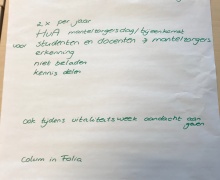 2 x per jaar
HvA mantelzorgersdag / bijeenkomst
voor studenten en docenten & mantelzorgers
erkenning
niet beladen
kennis delen
ook tijdens vitaliteitsweek aandacht aan
geven
Column in Folia